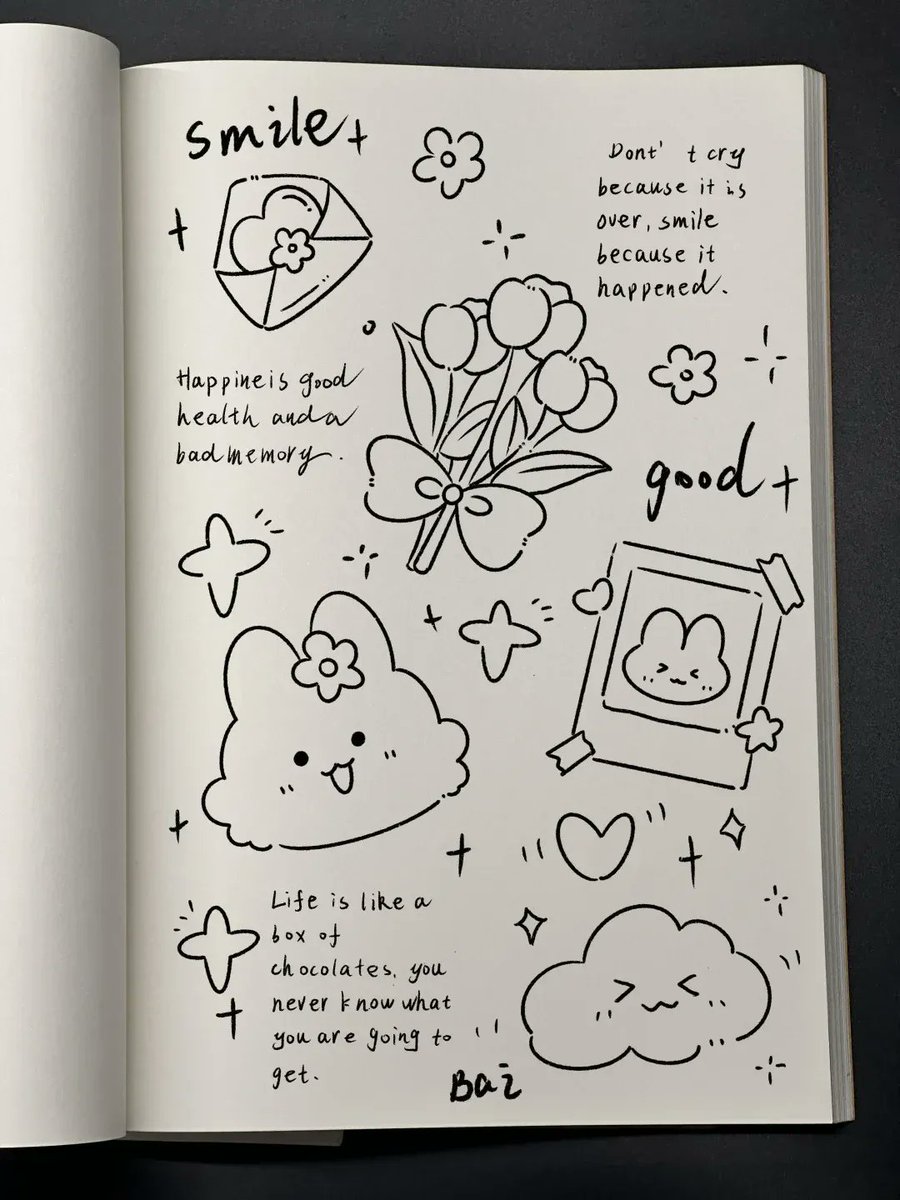 smile
Dont' t cry
because it is
over, smile
because it
happened.
Happine is good
health and a
bad memory.
good
Life is like a
box of
chocolates, you
never know what
you are going to
get.
Bai